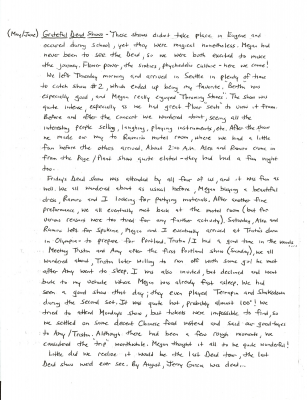 (May/June) Grateful Dead Shows - These shows didn't take place in Eugene and
occured during school, yet they were magical nonetheless. Megan had
never been to see the Dead, so we were both excited to make
the journey. Flower power, the sixties, psychedelic culture - here we come!
We left Thursday morning and arrived in Seattle in plenty of time
to catch show #2, which ended up being my favorite. Bertha was
especially good, and Megan really enjoyed "Morning Stones". The show was
quite intense, especially as we had great "floor seats" to view it from.
Before and after the concert we wandered about, seeing all the
interesting people selling, laughing, playing instruments, etc. After the show
we made our way to Ramon's motel room where we had a little
fun before the others arrived. About 2:00 A.M. Alex and Ramon came in
from the Page/Plant show quite elated - they had had a fun night
too.
Friday's Dead show was attended by all four of us, and it was fun as
well. We all wandered about as usual before, Megan buying a beautiful
dress, Ramon and I looking for partying materials. After another fine
performance, we all eventually met back at the motel room (but the
various cousins were too tired for any further activity). Saturday, Alex and
Ramon left for Spokane, Megan and I eventually arrived at Trutn's dorm
in Olympia to prepare for Portland. Trutn/I had a good time in the woods.
Meeting Trutn and Amy after the first Portland show (Sunday), we all
wandered about, Trutn later willing to run off with some girl he met
after Amy went to sleep. I was also invited, but declined and went
back to my vehicle where Megan was already fast asleep. We had
seen a good show that day; they even played Terrapin and Shakedown
during the second set. It was quite hot, probably almost 100°! We
tried to attend Monday's show, but tickets were impossible to find, so
we settled on some decent Chinese food instead and said our good-byes
to Amy/Trutn. Although there had been a few rough moments, we
considered the "trip" worthwhile. Megan thought it all to be quite wonderful!
Little did we realize it would be the last Dead tour, the last
Dead show we'd ever see. By August, Jerry Garcia was dead...